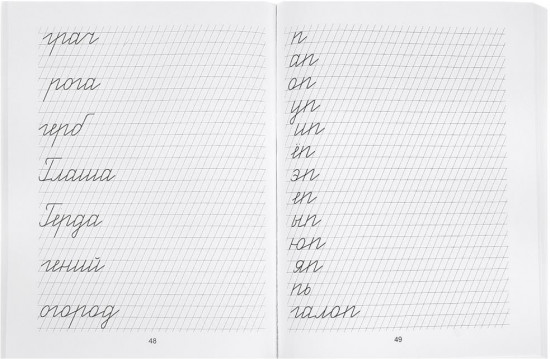 грач
рога
герб
Глаша
Герда
гений
огород
48
п
ап
оп
уп
ип
ёп
эп
еп
ып
юп
яп
пь
галоп
49